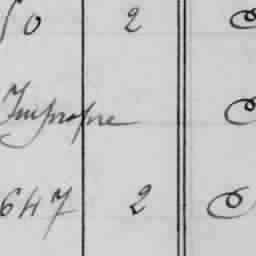 50 2
Impropre
647 2